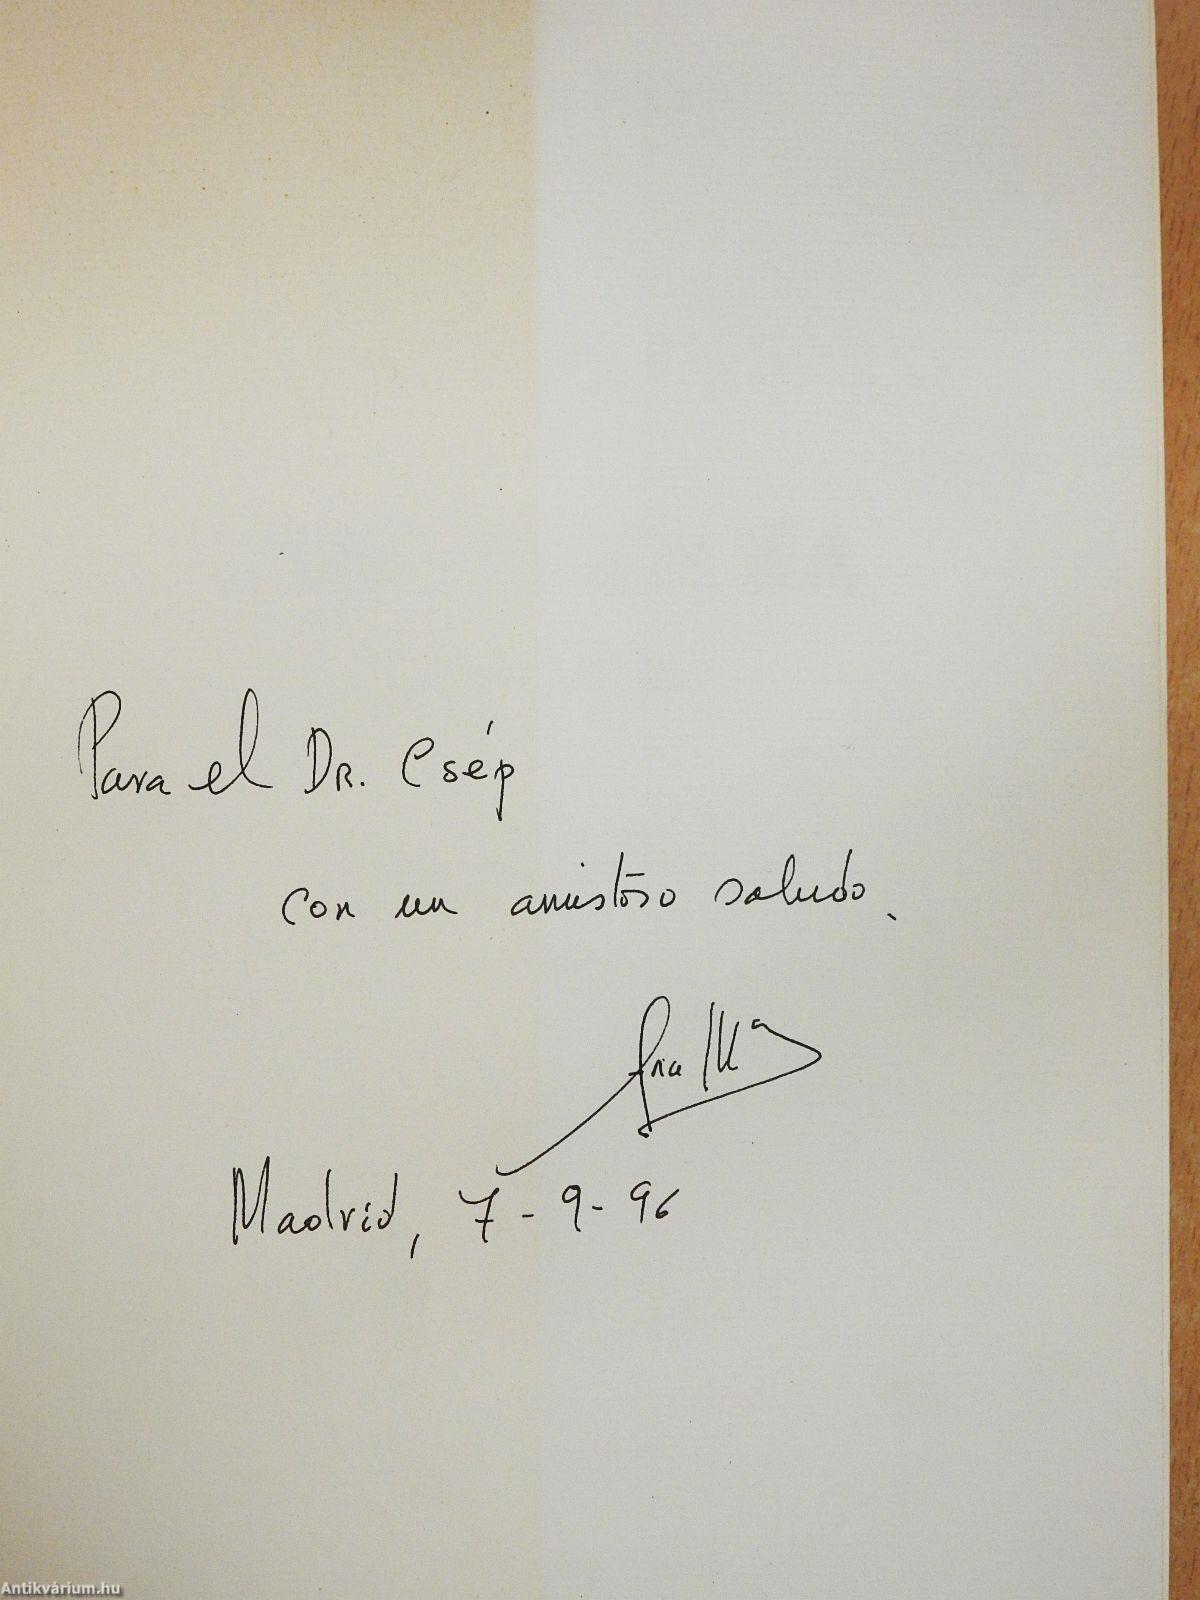 Para el DR. Csép
con un amistoso saludo.
Ana Mª
Madrid, 7-9-96
Antikvárium.hu